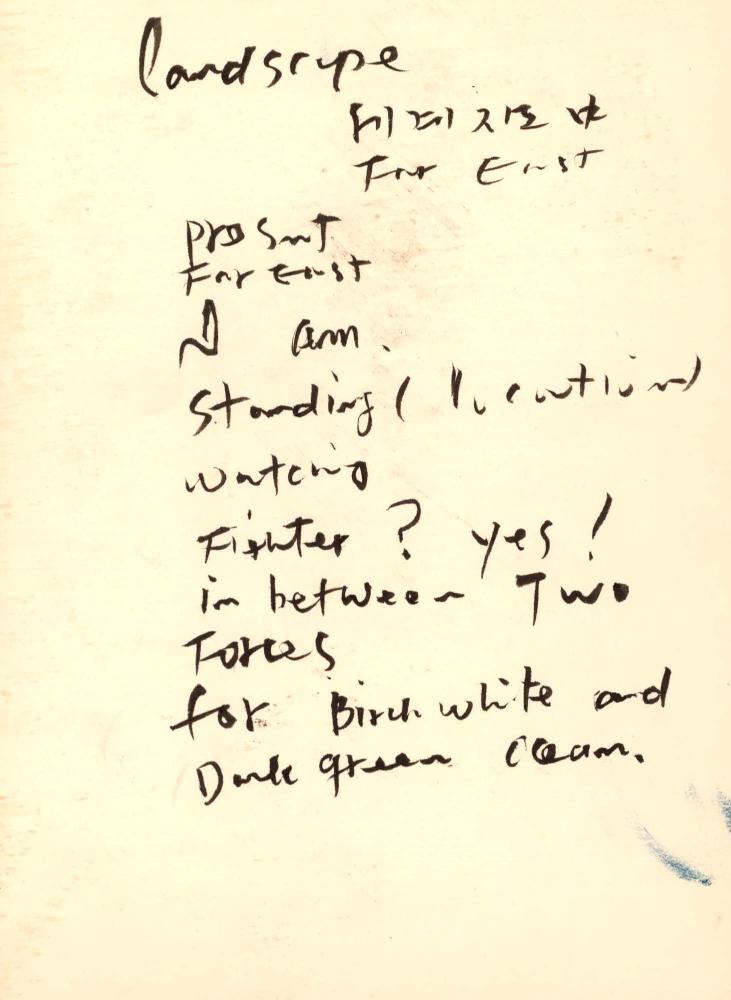 landscape
세계지도 中
Far East
present
Far East
I am.
standing ( location)
watching
Fighter ? yes !
in between Two
Forces
for Birch white and
Dark green ocean.